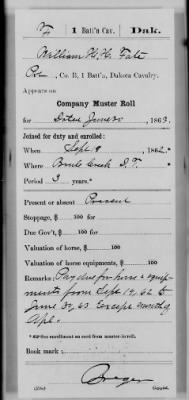 F | 1 Batt'n Cav. | Dak.
William H. H. Fate
Pvt, Co. B, 1 Batt'n, Dakota Cavalry.
Appears on
Company Muster Roll
for Dated June 30, 1863.
Joined for duty and enrolled:
When Sept 9, 1862*
Where Brule Creek D.T.
Period 3 years.*
Present or absent Present
Stoppage, $ 100 for
Due Gov't, $ 100 for
Valuation of horse, $ 100
Valuation of horse equipments, $ 100
Remarks: Pay due for horse & equip
ments from Sept 19, 62 to
June 30, 63 except month of
Apl.
* See enrollment on card from muster-in roll.
Book mark:
Copyist.